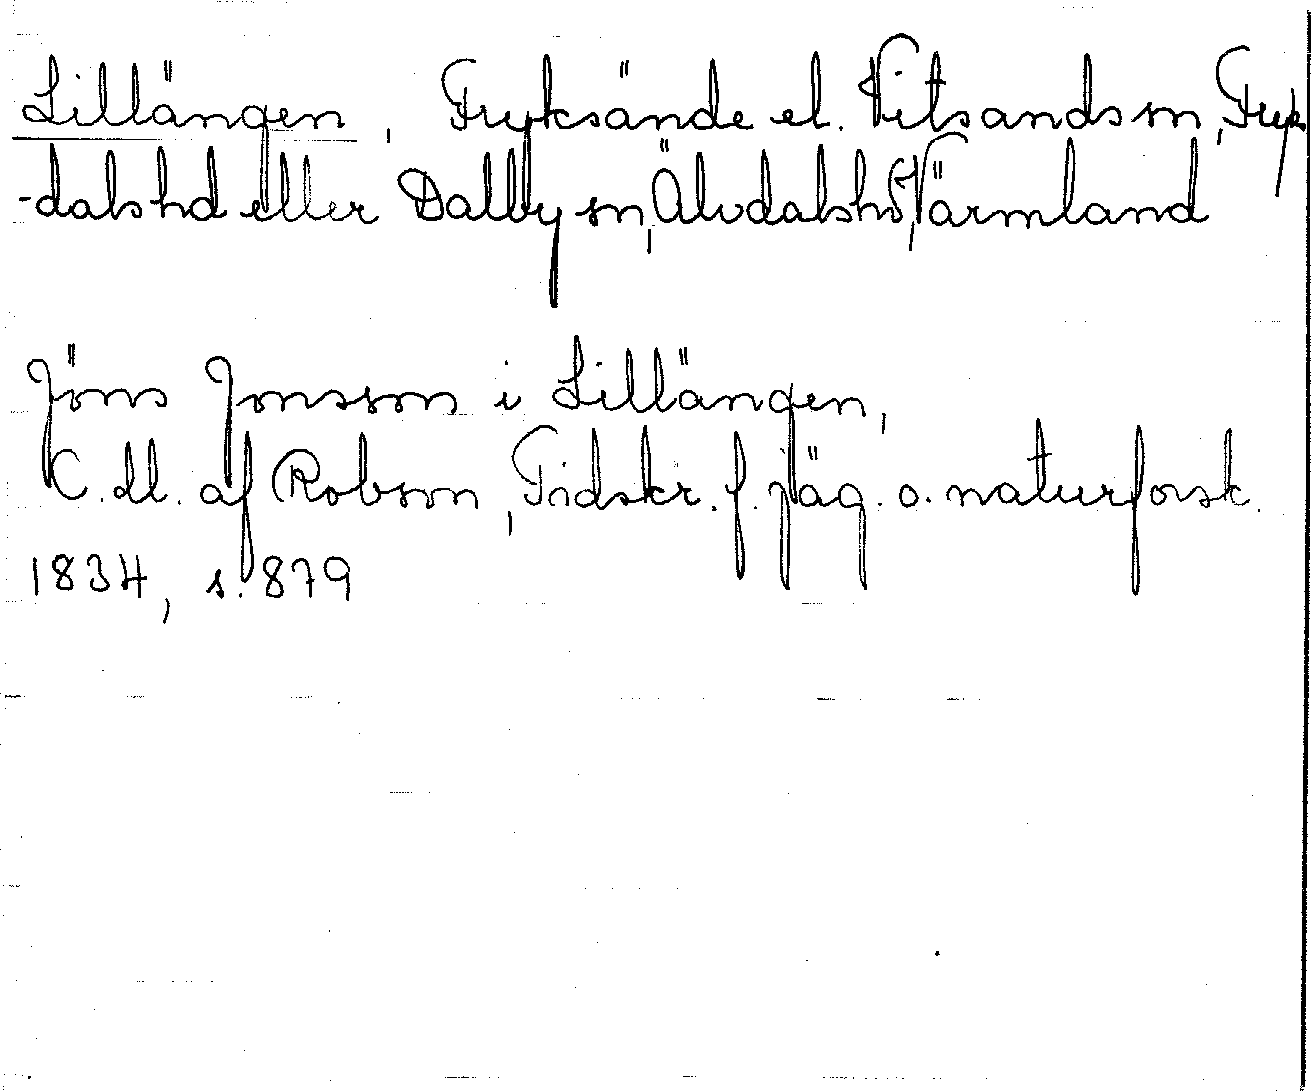 Lillängen, Fryksände el. Vitsands sn, Fryk
-dals hd eller Dalby sn, Älvdals hd, Värmland
Jöns Jonsson i Lillängen,
C. dl. af Robson, Tidskr. f. jäg. o. naturforsk.
1834, s. 879